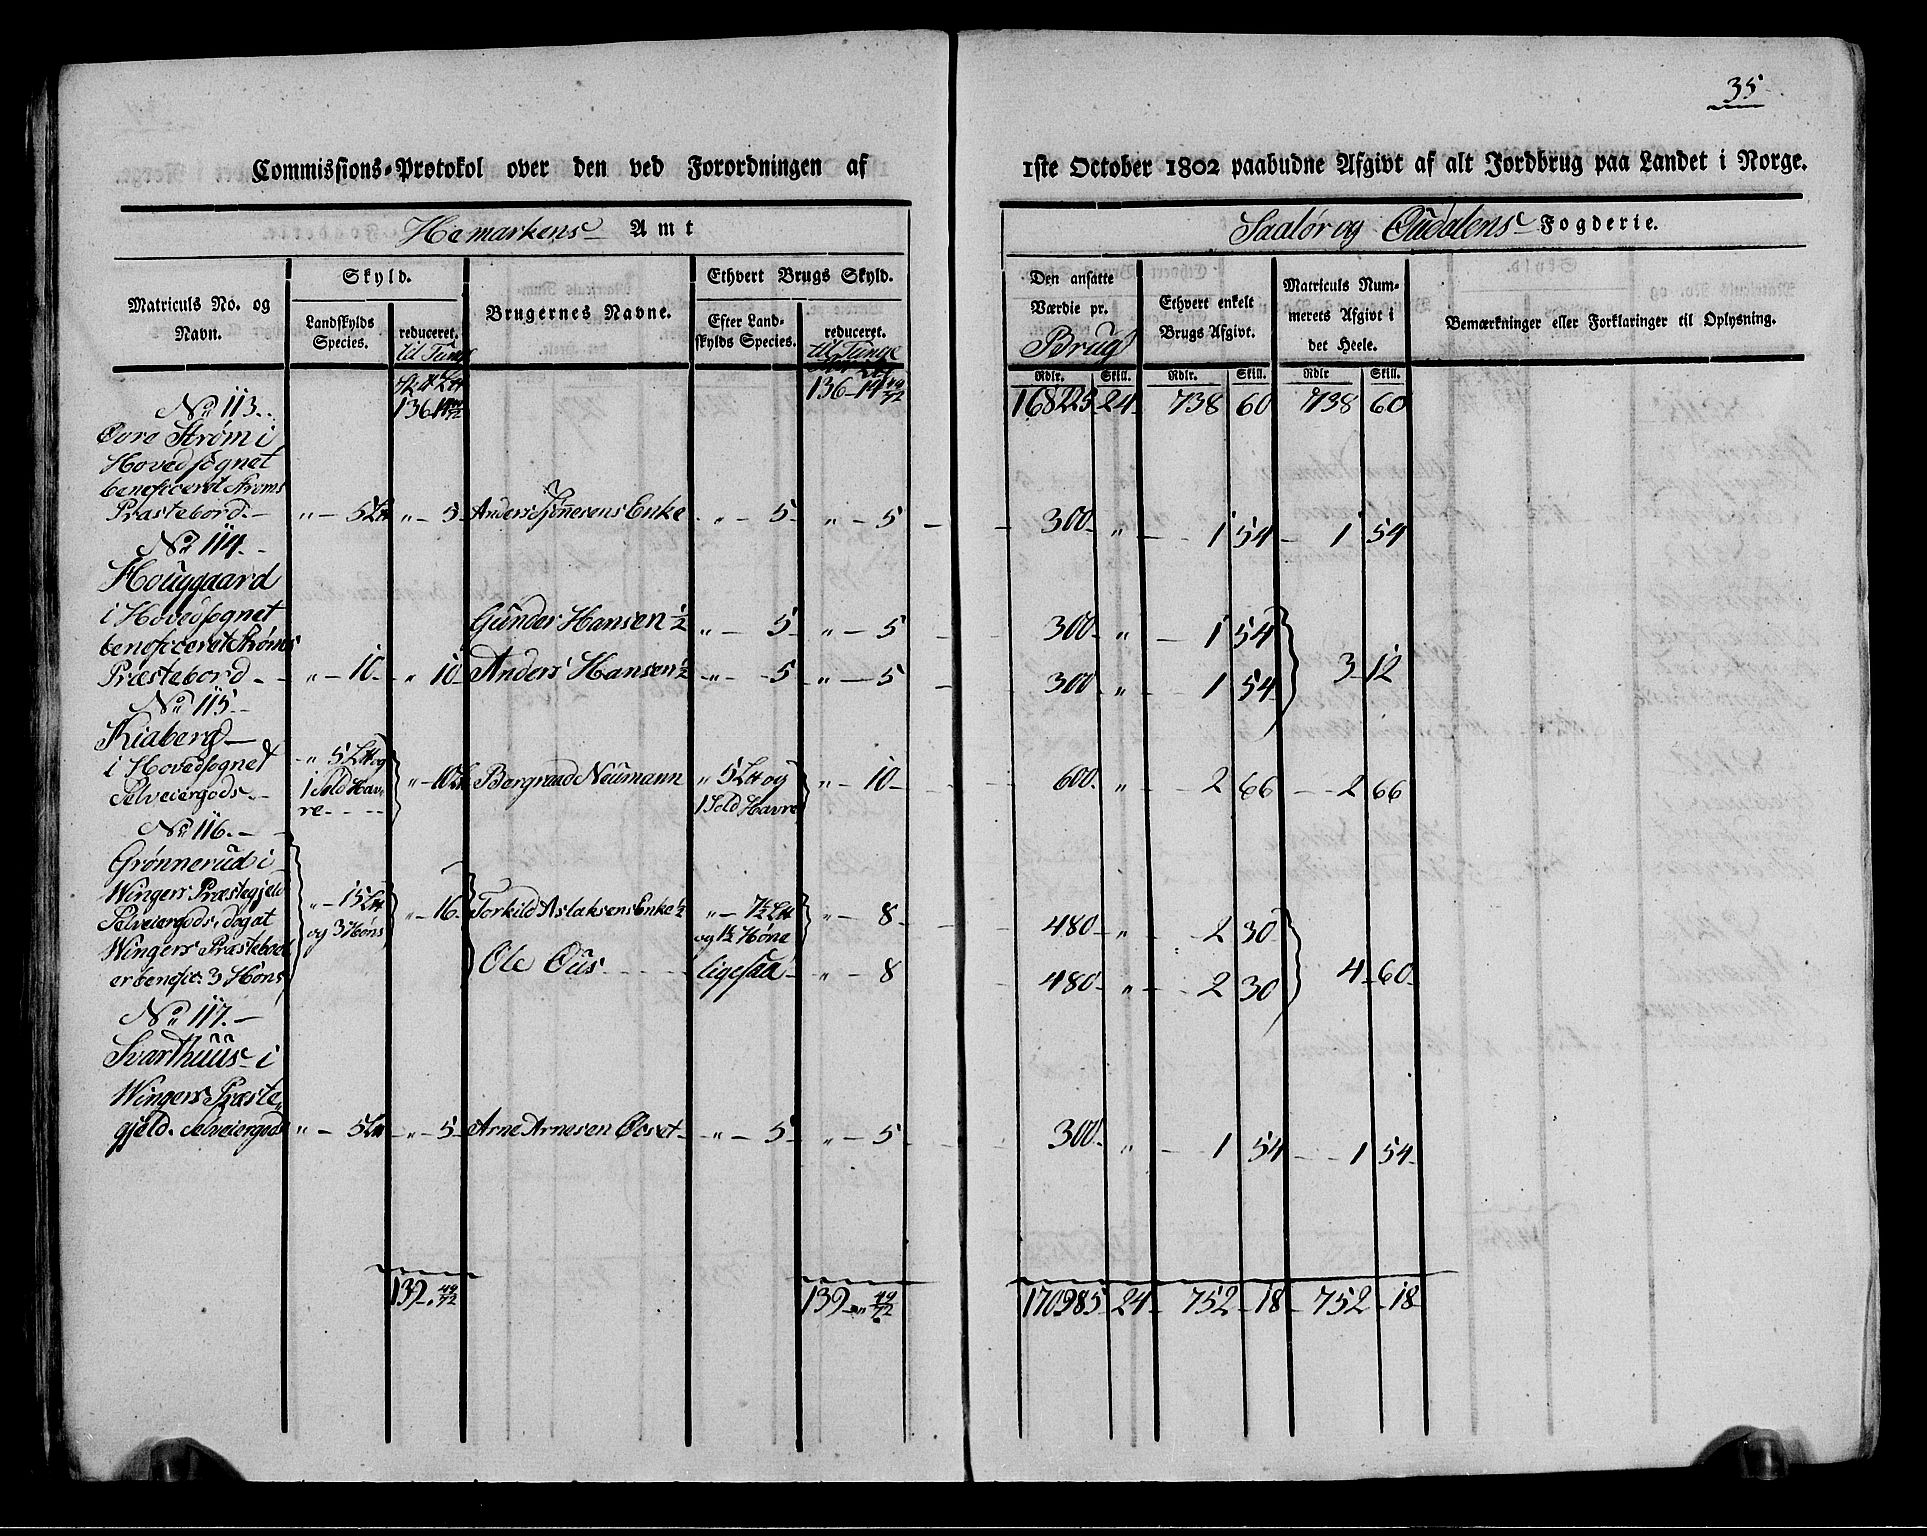 35
Commissions-Protokol over den ved Forordningen af 1ste October 1802 paabudne Afgivt af alt Jordbrug paa Landet i Norge.
Hemarkens Amt
Saalør og Oudalens Fogderie.
Matriculs No. og Navn.
Skyld.
Landskylds Species.
reduceret. til Tunge
Brugernes Navne.
Ethvert Brugs Skyld.
Efter Landskylds Species.
reduceret. til Tunge
Den ansatte Værdie pr. Brug
Ethvert enkelt Brugs Afgivt.
Matriculs Nummerets Afgivt i det Heele.
Bemærkninger eller Forklaringer til Oplysning.
Rdlr. Skill. Rdlr. Skill. Rdlr Skill.
136 - 19 136 - 19 168225 24 738 60 738 60
No 113.
Øvre Strøm i
Hovedsognet
beneficeret Strøms
Præstebord. " 5 " 5 Anders Enke " 5 " 5 300 " 1 54 1 54
No 114.
Houggaard
i Hovedsognet Gunder Hansen ½ " 5 " 5 300 " 1 54
beneficeret Strøms
Præstebord " 10 " 10 Anders Hansen ½ " 5 " 5 300 " 1 54 3 12
No 115.
Kiaberg
i Hovedsognet " 5 L℔ og
Selveiergods. 1 Sold Havre " 10 Bergraad Neumann " 5 L℔ og 1 Sold Havre " 10 600 " 2 66 2 66
No 116.
Grønnerud i
Wingers Præstegjeld
Selveiergods, dogat " 15 L℔ og 3 Høns " 16 Torkild Aslaksens Enke ½ " 7½ L℔ og 1½ Høne " 8 480 " 2 30
Wingers Præstebord
er benefic: 3 Høns Ole Ous ligesaa " 8 480 " 2 30 4 60
No 117.
Svarthuus i
Wingers Præste
gjeld. Selveiergods " 5 " 5 Arne Arnesen Øeset " 5 " 5 300 " 1 54 1 54
139 " 49/72 139 " 49/72 170985 24 752 18 752 18